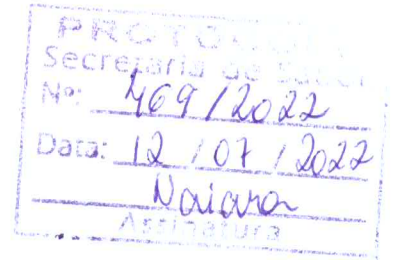 PROTOCOLO
Secretaria de Saúde
Nº: 469/2022
Data: 12 / 07 / 2022
Naiara
Assinatura